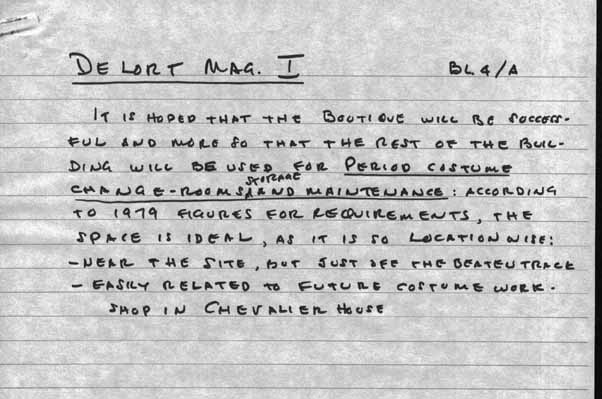 DELORT MAG. I BL. 4/A
IT IS HOPED THAT THE BOUTIQUE WILL BE SUCCESS-
FUL AND MORE SO THAT THE REST OF THE BUIL-
DING WILL BE USED FOR PERIOD COSTUME
STORAGE
CHANGE-ROOMS, AND MAINTENANCE: ACCORDING
TO 1979 FIGURES FOR REQUIREMENTS, THE
SPACE IS IDEAL, AS IT IS SO LOCATIONWISE:
-NEAR THE SITE, BUT JUST OFF THE BEATEN TRACK
- EASILY RELATED TO FUTURE COSTUME WORK-
SHOP IN CHEVALIER HOUSE